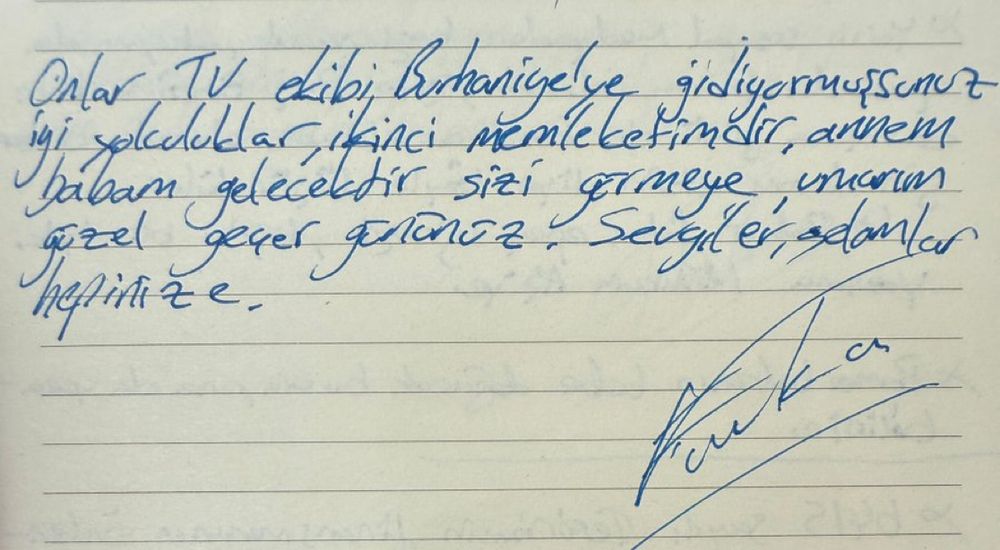 Onlar TV ekibi, Burhaniye'ye gidiyormuşsunuz
iyi yolculuklar, ikinci memleketimdir, annem
babam gelecektir sizi görmeye, umarım
güzel geçer gününüz. Sevgiler, selamlar
hepinize.